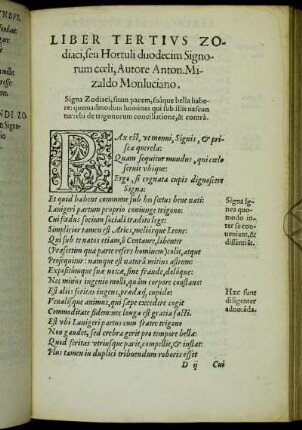 LIBER TERTIVS ZO-
diaci, seu Hortuli duodecim Signo-
rum cœli, Autore Anton. Mi-
zaldo Monluciano.
Signa Zodiaci, suam pacem, suaque bella habe-
re: quemadmodum homines qui sub illis nascun
tur: ubi de trigonorum conciliatione, & contrà.
PAx est, ut monui, Signis, & pri-
sca querela:
Quam sequitur mundus, qui cœlo
seruit ubique:
Ergo, si cognata cupis dignoscere
Signa:
Et quid habeant commune sub his fœtus bene nati:
Lanigeri partum proprio coniunge trigono:
Cui fœdus socium sociali tradito lege:
Simplicior tamen est Aries, meliorque Leone:
Qui sub te natos etiam, ô Centaure, libenter
(Præsertim qua parte refers hominem) colit, atque
Prosequitur: namque est natura mitius astrum:
Expositumque suæ noxæ, sine fraude, dolique:
Nec minus ingenio molli, quàm corpore constat
Est alijs feritas ingens, prædæque cupido:
Venalisque animus, qui sæpe excedere cogit
Commoditate fidem: nec longa est gratia facti.
Est ubi Lanigeri partus cum fratre trigono
Non gaudet, sed crebra gerit pro tempore bella:
Quod feritas utriusque parit, compellit, & instat:
Plus tamen in duplici tribuendum roboris esset
D ij Cui
Signa Ig-
nes quo-
modo in
ter se con
ueniant, &
dissentiāt.
Hæc sunt
diligenter
aduocāda.